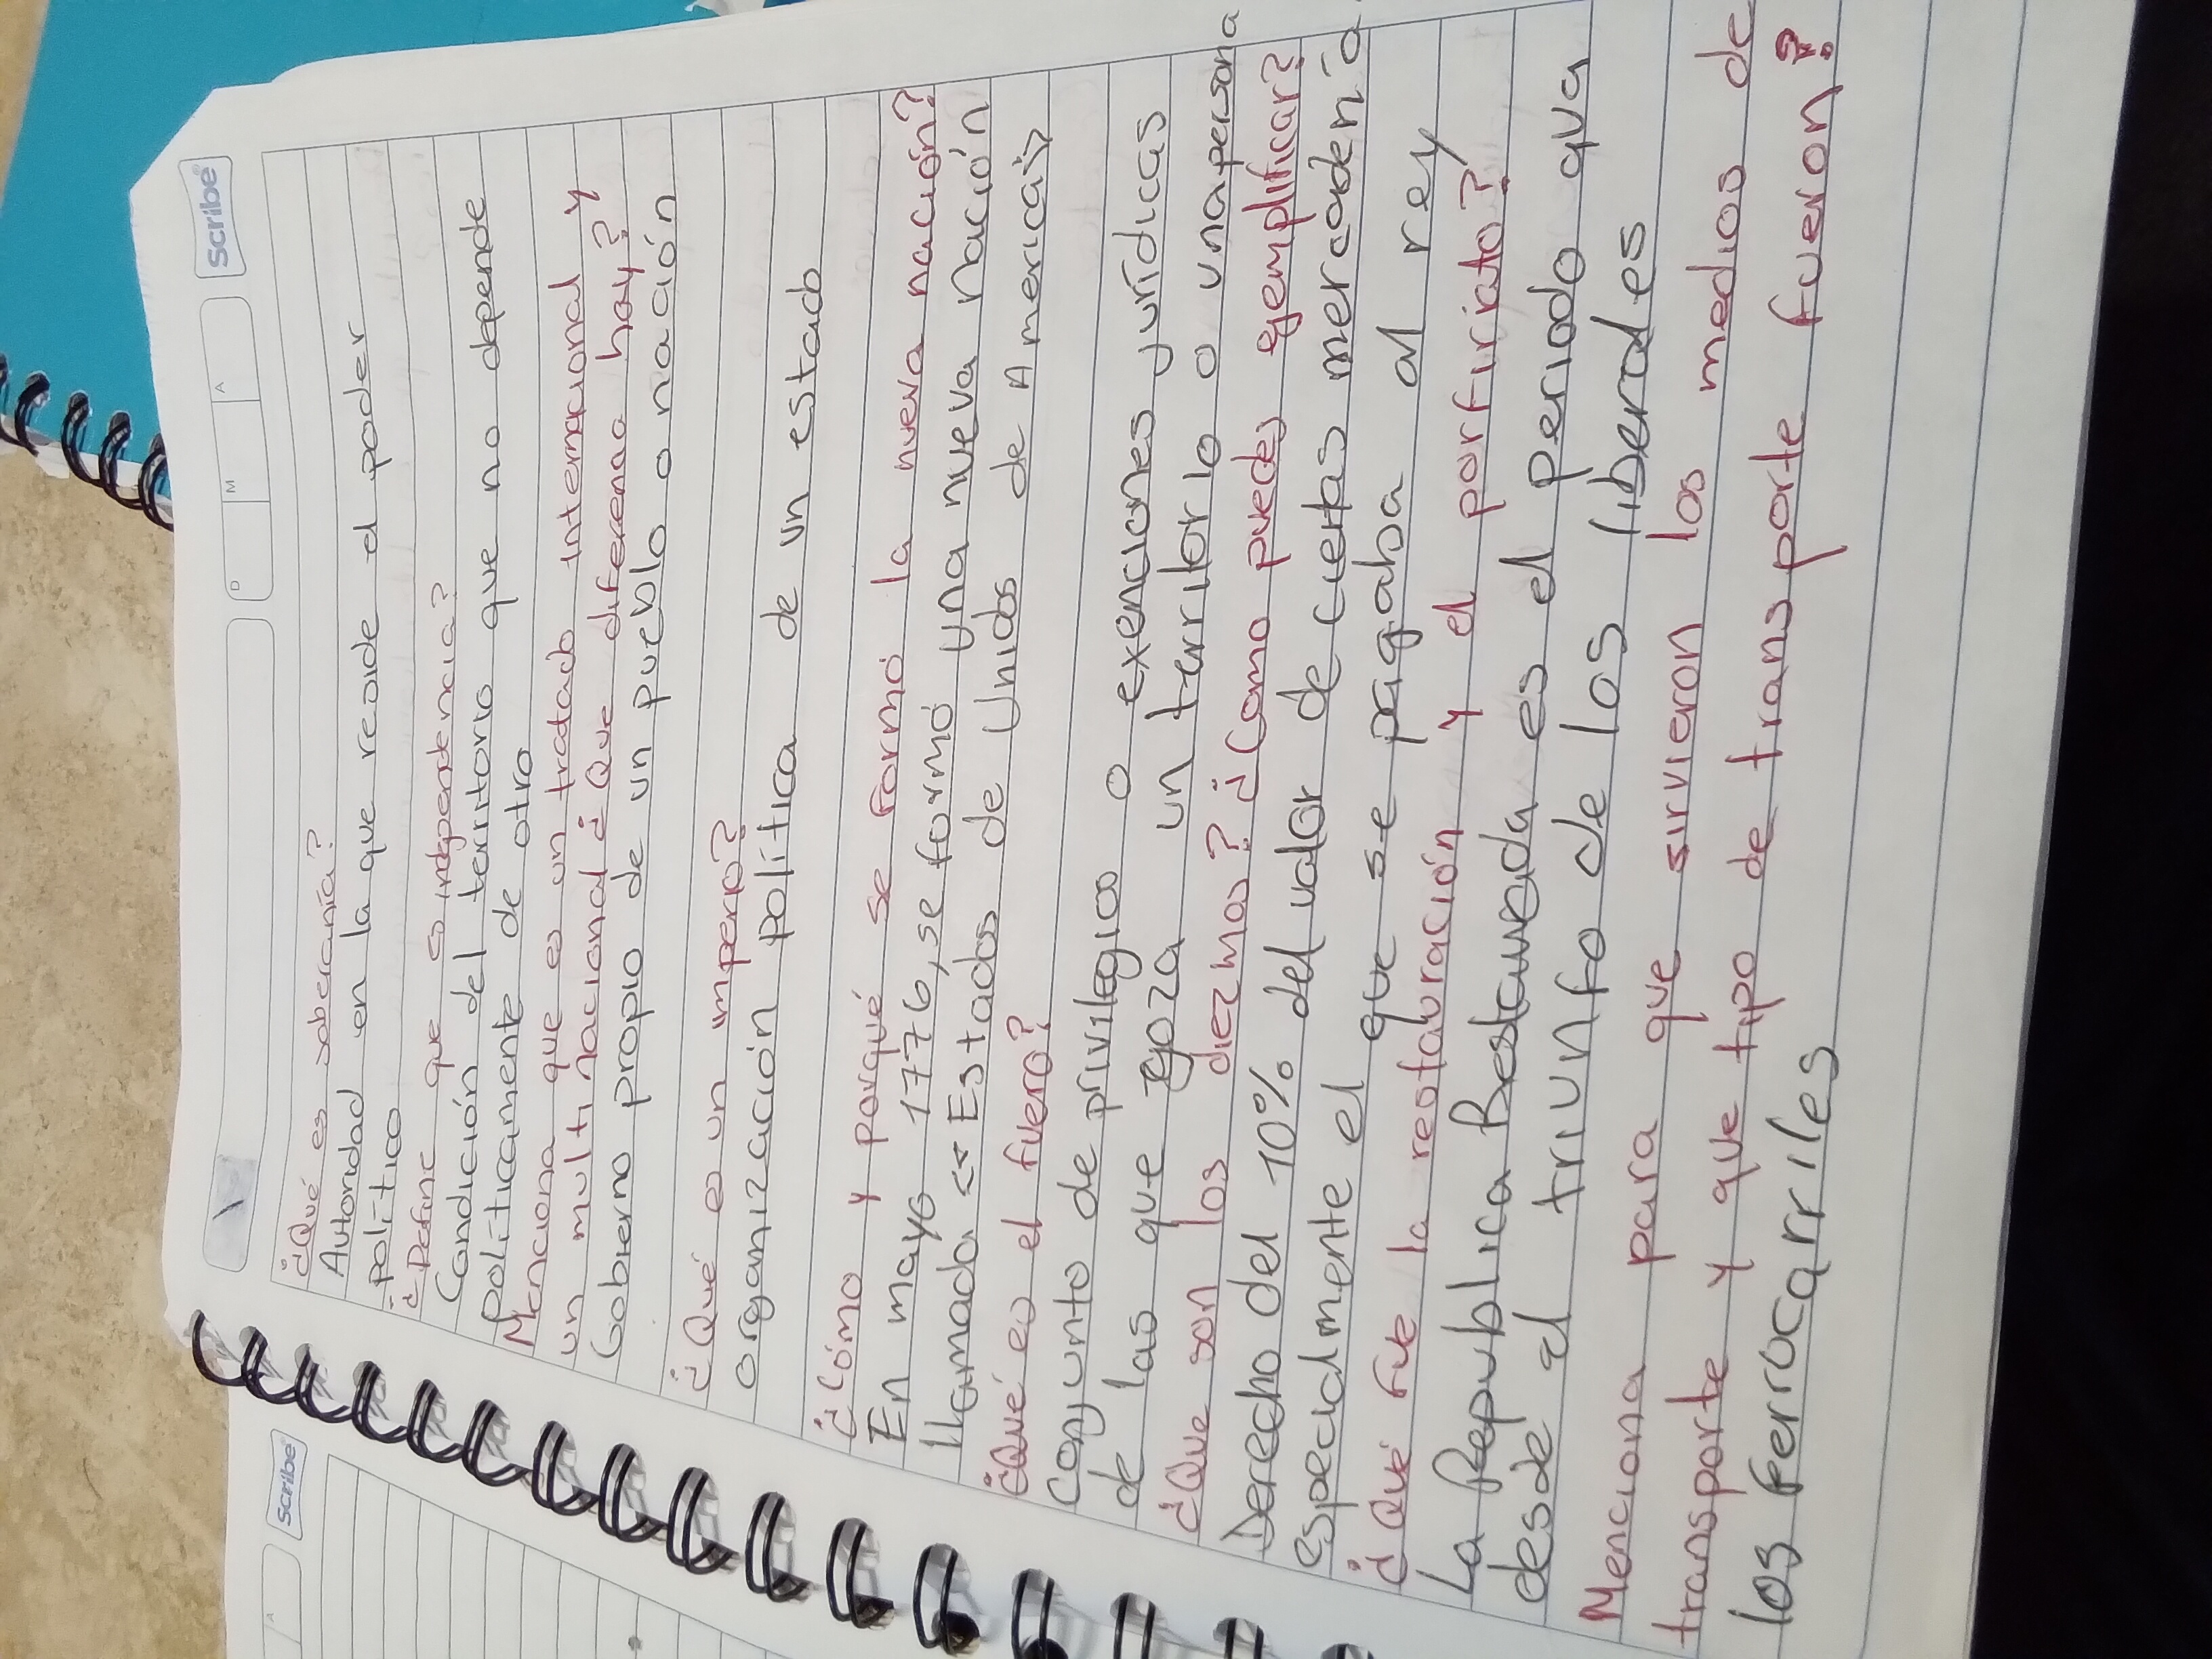 Scribe
D M A
¿Qué es soberanía?
Autoridad en la que recide el poder
político
¿Define que es independencia?
Condición del territorio que no depende
políticamente de otro
Menciona que es un tratado internacional y
un multinacional ¿Que diferencia hay?
Gobierno propio de un pueblo o nación
¿Qué es un imperio?
organización política de un estado
¿Cómo y porqué se formó la nueva nación?
En mayo 1776, se formó una nueva nación
llamada <<Estados de Unidos de America>>
¿Qué es el fuero?
Conjunto de privilegios o exenciones jurídicas
de las que goza un territorio o una persona
¿Que son los diezmos? ¿Como puedes ejemplificar?
Derecho del 10% del valor de ciertas mercadería
especialmente el que se pagaba al rey
¿Qué fue la restauración y el porfiriato?
La Republica Restaurada es el periodo qva
desde el triunfo de los liberales
Menciona para que sirvieron los medios de
transporte y que tipo de transporte fueron?
los ferrocarriles
Scribe
A